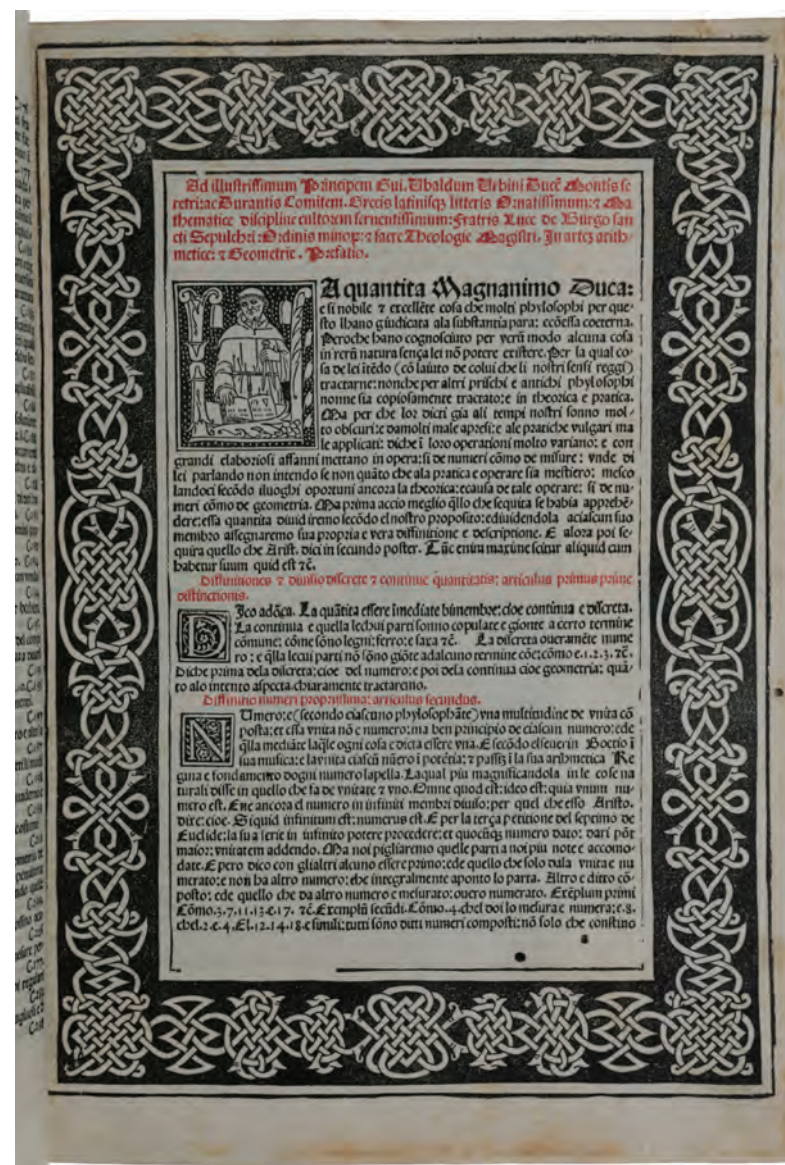 Ad illustrissimum Principem Gui. Ubaldum Urbini Ducē Montis fe
retri: ac Durantis Comitem. Grecis latinisqȝ litteris Ornatissimum: ⁊ Ma
thematice discipline cultorem feruentissimum: Fratris Luce de Burgo san
cti Sepulchri: Ordinis minoꝝ: ⁊ sacre Theologie Magistri. In artē arith-
metice: ⁊ Geometrie. Prefatio.
La quantita Magnanimo Duca:
e si nobile ⁊ excellēte cosa che molti phylosophi per que-
sto lhano giudicata ala substantia para: ecōessa coeterna.
Peroche hano cognosciuto per verū modo alcuna cosa
in rerū natura senҫa lei nō potere existere. Per la qual co-
sa de lei itēdo (cō laiuto de colui che li nostri sensi reggi)
tractarne: nonche per altri prischi e antichi phylosophi
nonne sia copiosamente tractato: e in theorica e pratica.
Ma per che lor dicti gia ali tempi nostri sonno mol-
to obscuri: e damolti male apresi: e ale pratiche vulgari ma
le applicati: diche i loro operationi molto variano: e con
grandi elaboriosi affanni mettano in opera: si de numeri cōmo de misure: vnde di
lei parlando non intendo se non quāto che ala pratica e operare sia mestiero: mesco
landoci secōdo iluoghi oportuni ancora la theorica: ecausa de tale operare: si de nu-
meri cōmo de geometria. Ma prima accio meglio q̄llo che sequita se habia apprehē-
dere: essa quantita diuidiremo secōdo el nostro proposito: ediuidendola aciascun suo
membro assegnaremo sua propria e vera diffinitione e descriptione. E alora poi se-
quira quello che Arist. dici in secundo poster. Tūc enim maxime scitur aliquid cum
habetur suum quid est ⁊č.
Diffinitiones ⁊ diuisio discrete ⁊ continue quantitatis: articulus primus prime
distinctionis.
Dico adōca. La quātita essere īmediate bimembre: cioe continua e discreta.
La continua e quella lecui parti sonno copulate e gionte a certo termine
comune: cōme sōno legni: ferro: e saxa ⁊č. La discreta oueramēte nume
ro: e q̄lla lecui parti nō sōno giōte adalcuno termine cōe: cōmo e.1.2.3.⁊č.
Diche prima dela discreta: cioe del numero: e poi dela continua cioe geometria: quā-
to alo intento aspecta chiaramente tractaremo.
Diffinitio numeri propriissima: articulus secundus.
NUmero: e (secondo ciascuno phylosophāte) vna multitudine de vnita cō
posta: et essa vnita nō e numero: ma ben principio de ciascun numero: ede
q̄lla mediāte laq̄le ogni cosa e dicta essere vna. E secōdo el seuerin Boetio ī
sua musica: e la vnita ciascū nūero ī potētia: ⁊ passī ī la sua arithmetica Re
gina e fondamento dogni numero lapella. Laqual piu magnificandola in le cose na
turali disse in quello che fa de vnitate ⁊ vno. Omne quod est: ideo est: quia vnum nu-
mero est. Ene ancora el numero in infiniti membri diuiso: per quel che esso Aristo.
dixe: cioe. Siquid infinitum est: numerus est. E per la terça petitione del septimo de
Euclide: la sua serie in infinito potere procedere: et quocūqȝ numero dato: dari pōt
maior: vnitatem addendo. Ma noi pigliaremo quelle parti a noi piu note e accomo-
date. E pero dico con glialtri alcuno essere primo: ede quello che solo dala vnita e nu
merato: e non ha altro numero: che integralmente aponto lo parta. Altro e ditto cō-
posto: ede quello che da altro numero e mesurato: ouero numerato. Exēplum primi
Cōmo.3.7.11.13.e.17. ⁊č. Exemplū secūdi. Cōmo.4. chel doi lo mesura e numera: e.8.
chel.2.e.4. El.12.14.18. e simili: tutti sōno ditti numeri composti: nō solo che constino